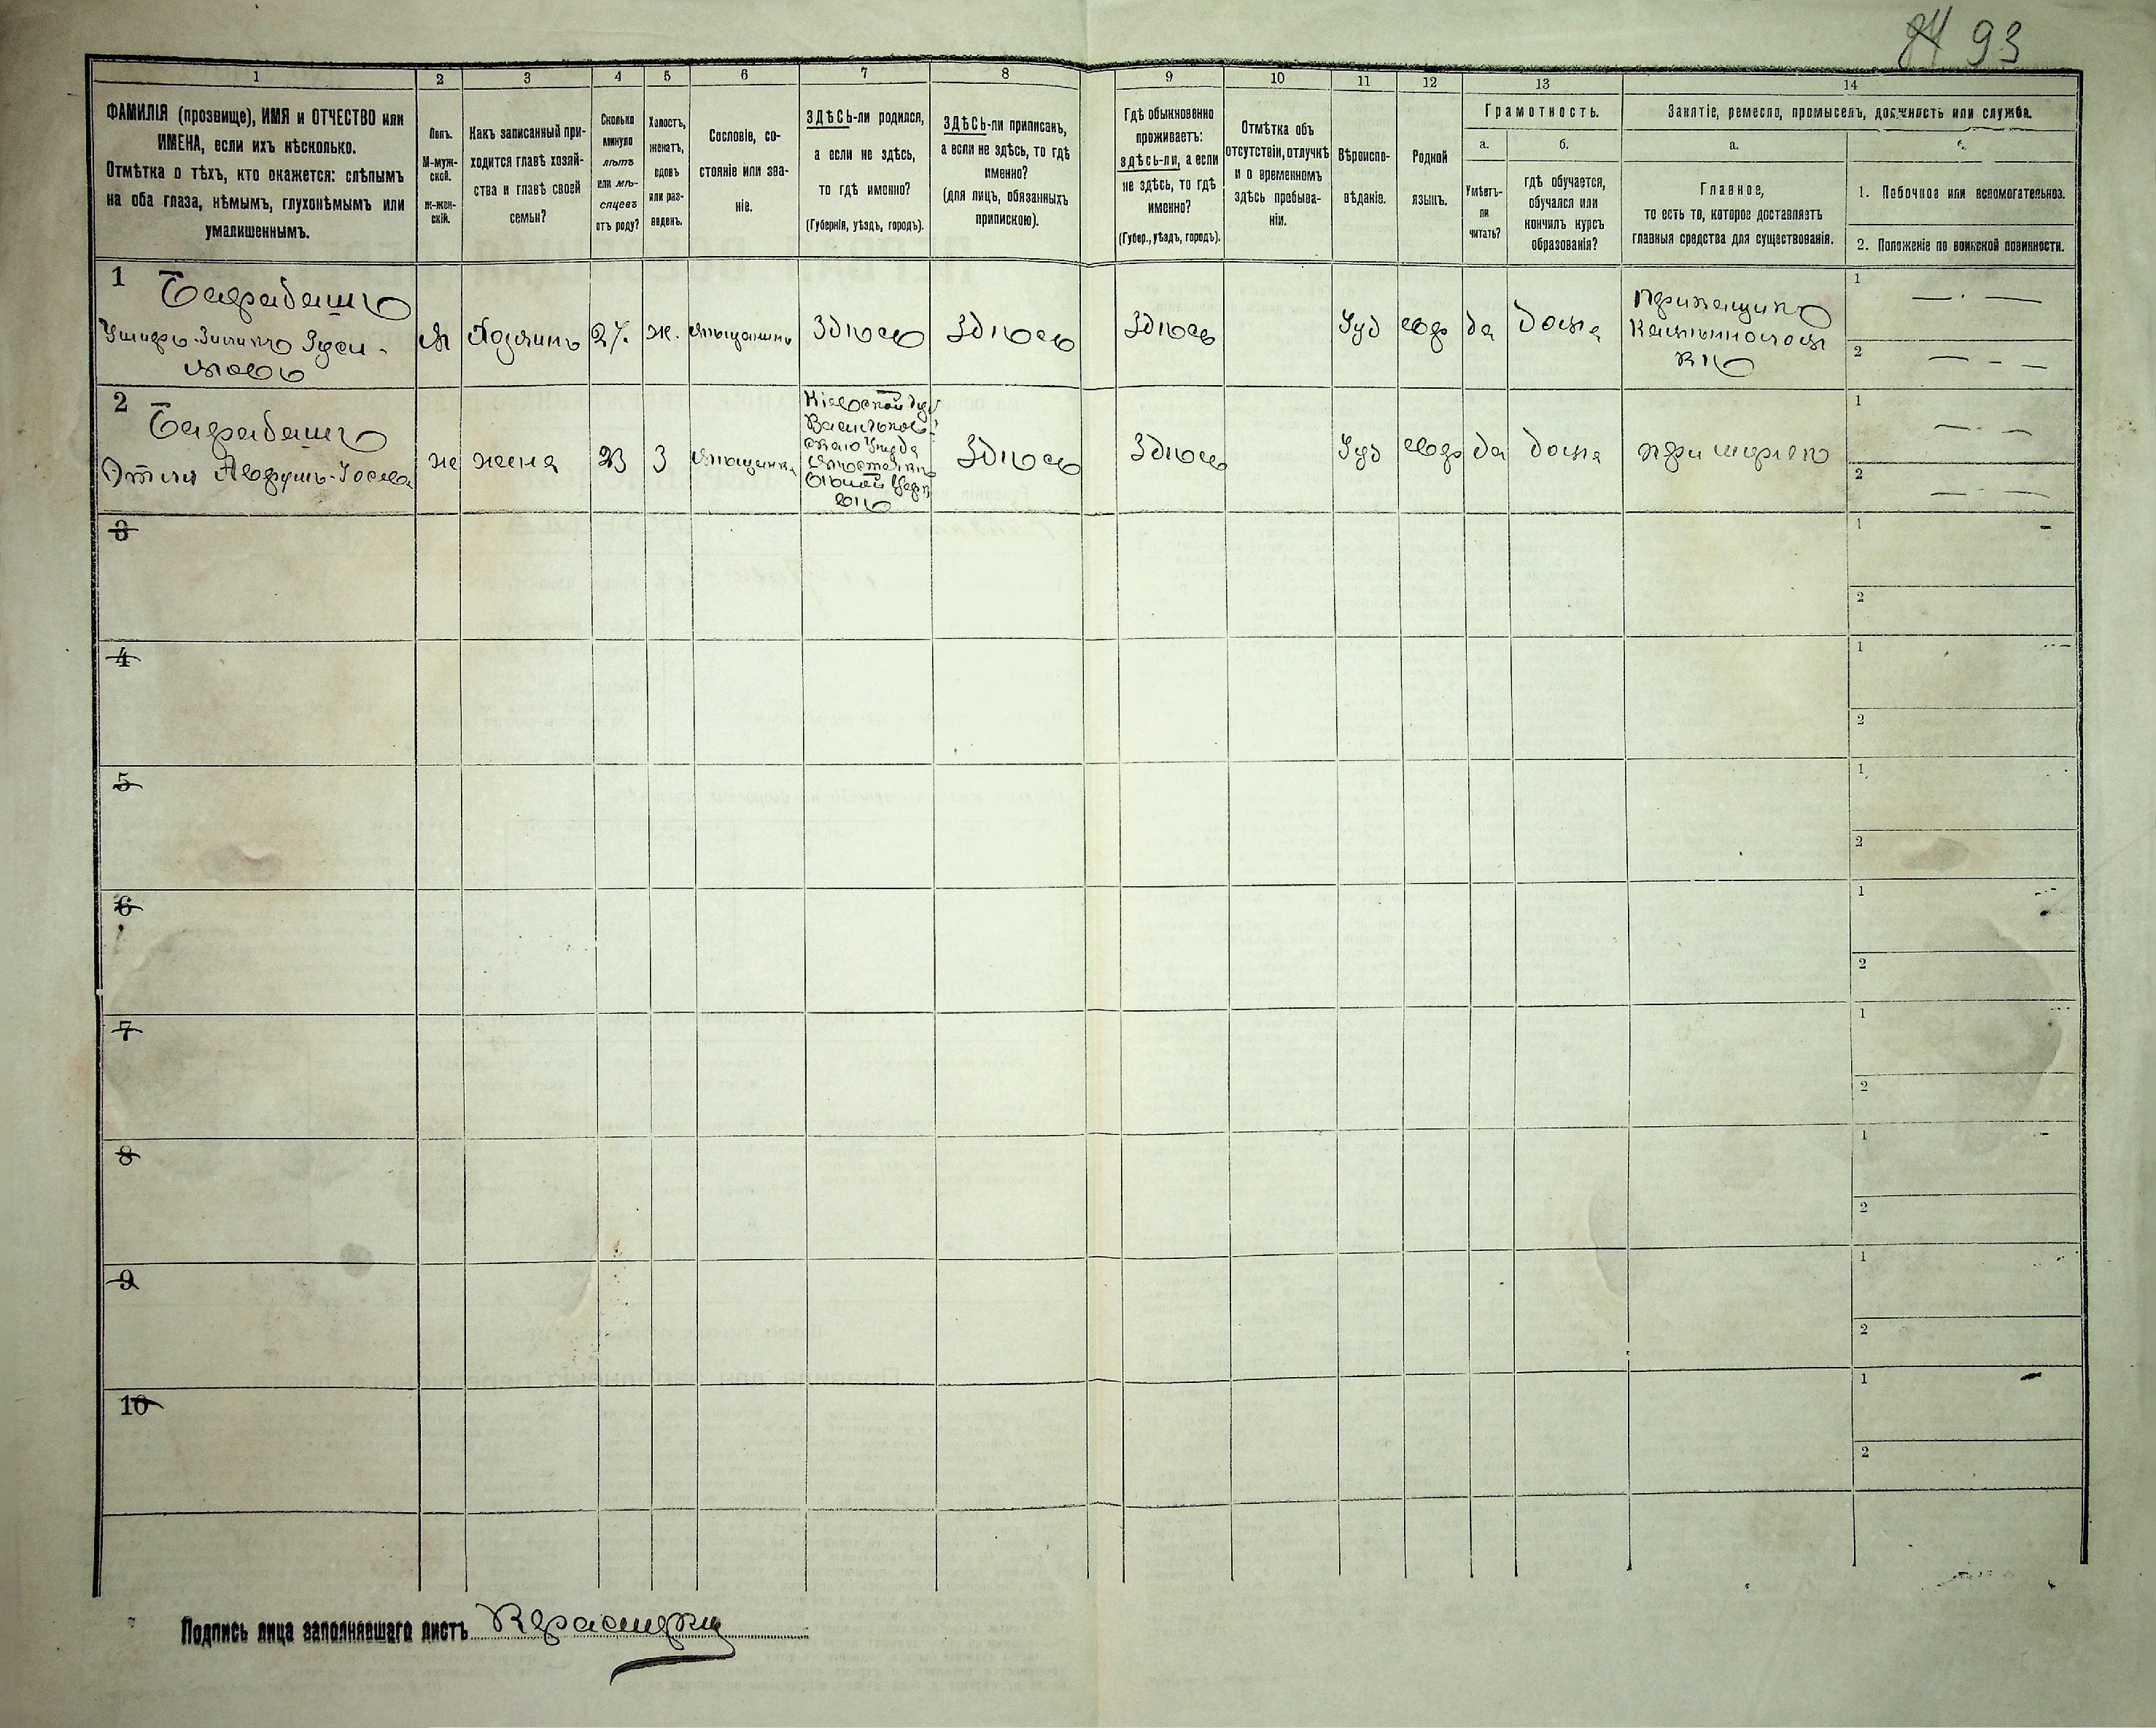 84 93
1 2 3 4 5 6 7 8 9 10 11 12 13 14
ФАМИЛІЯ (прозвище), ИМЯ и ОТЧЕСТВО или
ИМЕНА, если ихъ нѣсколько.
Отмѣтка о тѣхъ, кто окажется: слѣпымъ
на оба глаза, нѣмымъ, глухонѣмымъ или
умалишеннымъ.
Полъ.
М-муж-
ской.
Ж-жен-
скій.
Какъ записанный при-
ходится главѣ хозяй-
ства и главѣ своей
семьи?
Сколько
минуло
лѣтъ
или мѣ-
сяцевъ
отъ роду?
Холостъ,
женатъ,
вдовъ
или раз-
веденъ.
Сословіе, со-
стояніе или зва-
ніе.
ЗДѢСЬ-ли родился,
а если не здѣсь,
то гдѣ именно?
(Губернія, уѣздъ, городъ).
ЗДѢСЬ-ли приписанъ,
а если не здѣсь, то гдѣ
именно?
(для лицъ, обязанныхъ
припискою).
Гдѣ обыкновенно
проживаетъ:
здѣсь-ли, а если
не здѣсь, то гдѣ
именно?
(Губер., уѣздъ, городъ).
Отмѣтка объ
отсутствіи, отлучкѣ
и о временномъ
здѣсь пребыва-
ніи.
Вѣроиспо-
вѣданіе.
Родной
языкъ.
Грамотность.
а. б.
Умѣетъ-
ли
читать?
гдѣ обучается,
обучался или
кончилъ курсъ
образованія?
Занятіе, ремесло, промыселъ, должность или служба.
а.
Главное,
то есть то, которое доставляетъ
главныя средства для существованія.
1. Побочное или вспомогательное.
2. Положеніе по воинской повинности.
1 Барабашъ
м Хозяинъ 27. ж. мѣщанинъ Здѣсь Здѣсь Здѣсь Іуд евр да дома
приказщикъ
1
2
2 Барабашъ
Этля Аврумъ-Іосева
же жена 23 З мѣщанка
Кіевской губ
Васильков-
скаго Уѣзда
мѣстечкѣ
Бѣлой Церк
вѣ
Здѣсь Здѣсь Іуд евр да дома при мужѣ
1
2
3 1
2
4 1
2
5 1
2
6 1
2
7 1
2
8 1
2
9 1
2
10 1
2
Подпись лица заполнявшаго листъ